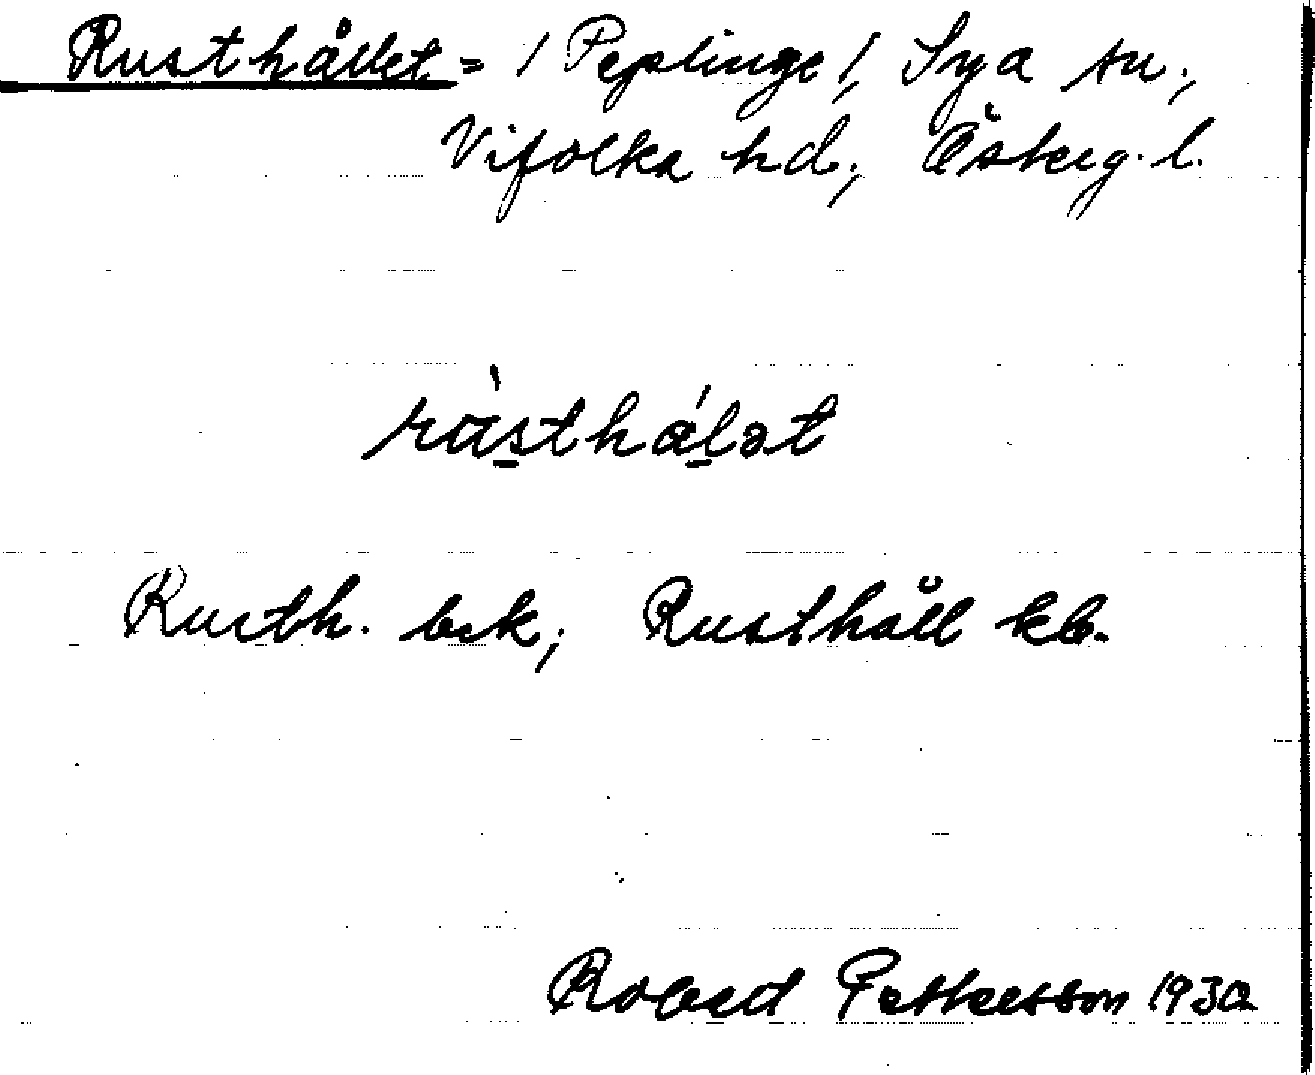 Rusthållet = / Peplinge /, Sya sn.,
Vifolka hd., Österg. l.
rùsthálət
Rusth. bek; Rusthåll kb.
Robert Pettersson 1930